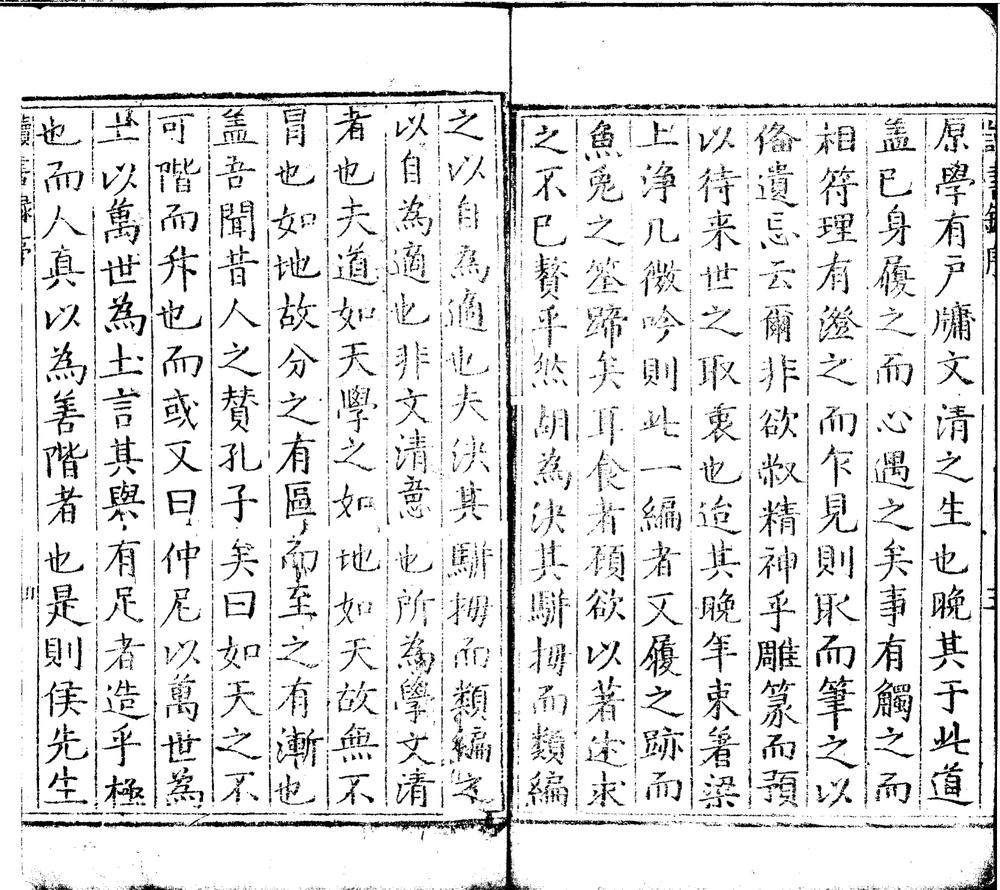 原學有戸牖文清之生也晚其于此道
盖已身履之而心遇之矣事有觸之而
相符理有澄之而乍見則取而筆之以
俻遺忘云爾非欲㪚精神乎雕篆而預
以待来世之取裏也迨其晚年束箸梁
上浄几微吟則此一編者又履之跡而
魚兎之筌蹄矣耳食者碩欲以著述求
之不已贅乎然胡為决其駢拇而類編
之以自為適也夫决其駢拇而類編之
以自為適也非文清意也所為學文清
者也夫道如天學之如地如天故無不
冐也如地故分之有區而至之有漸也
盖吾聞昔人之賛孔子矣曰如天之不
可階而升也而或又曰仲尼以萬世為
土以萬世為土言其與有足者造乎極
也而人真以為善階者也是則侯先生
讀書録序